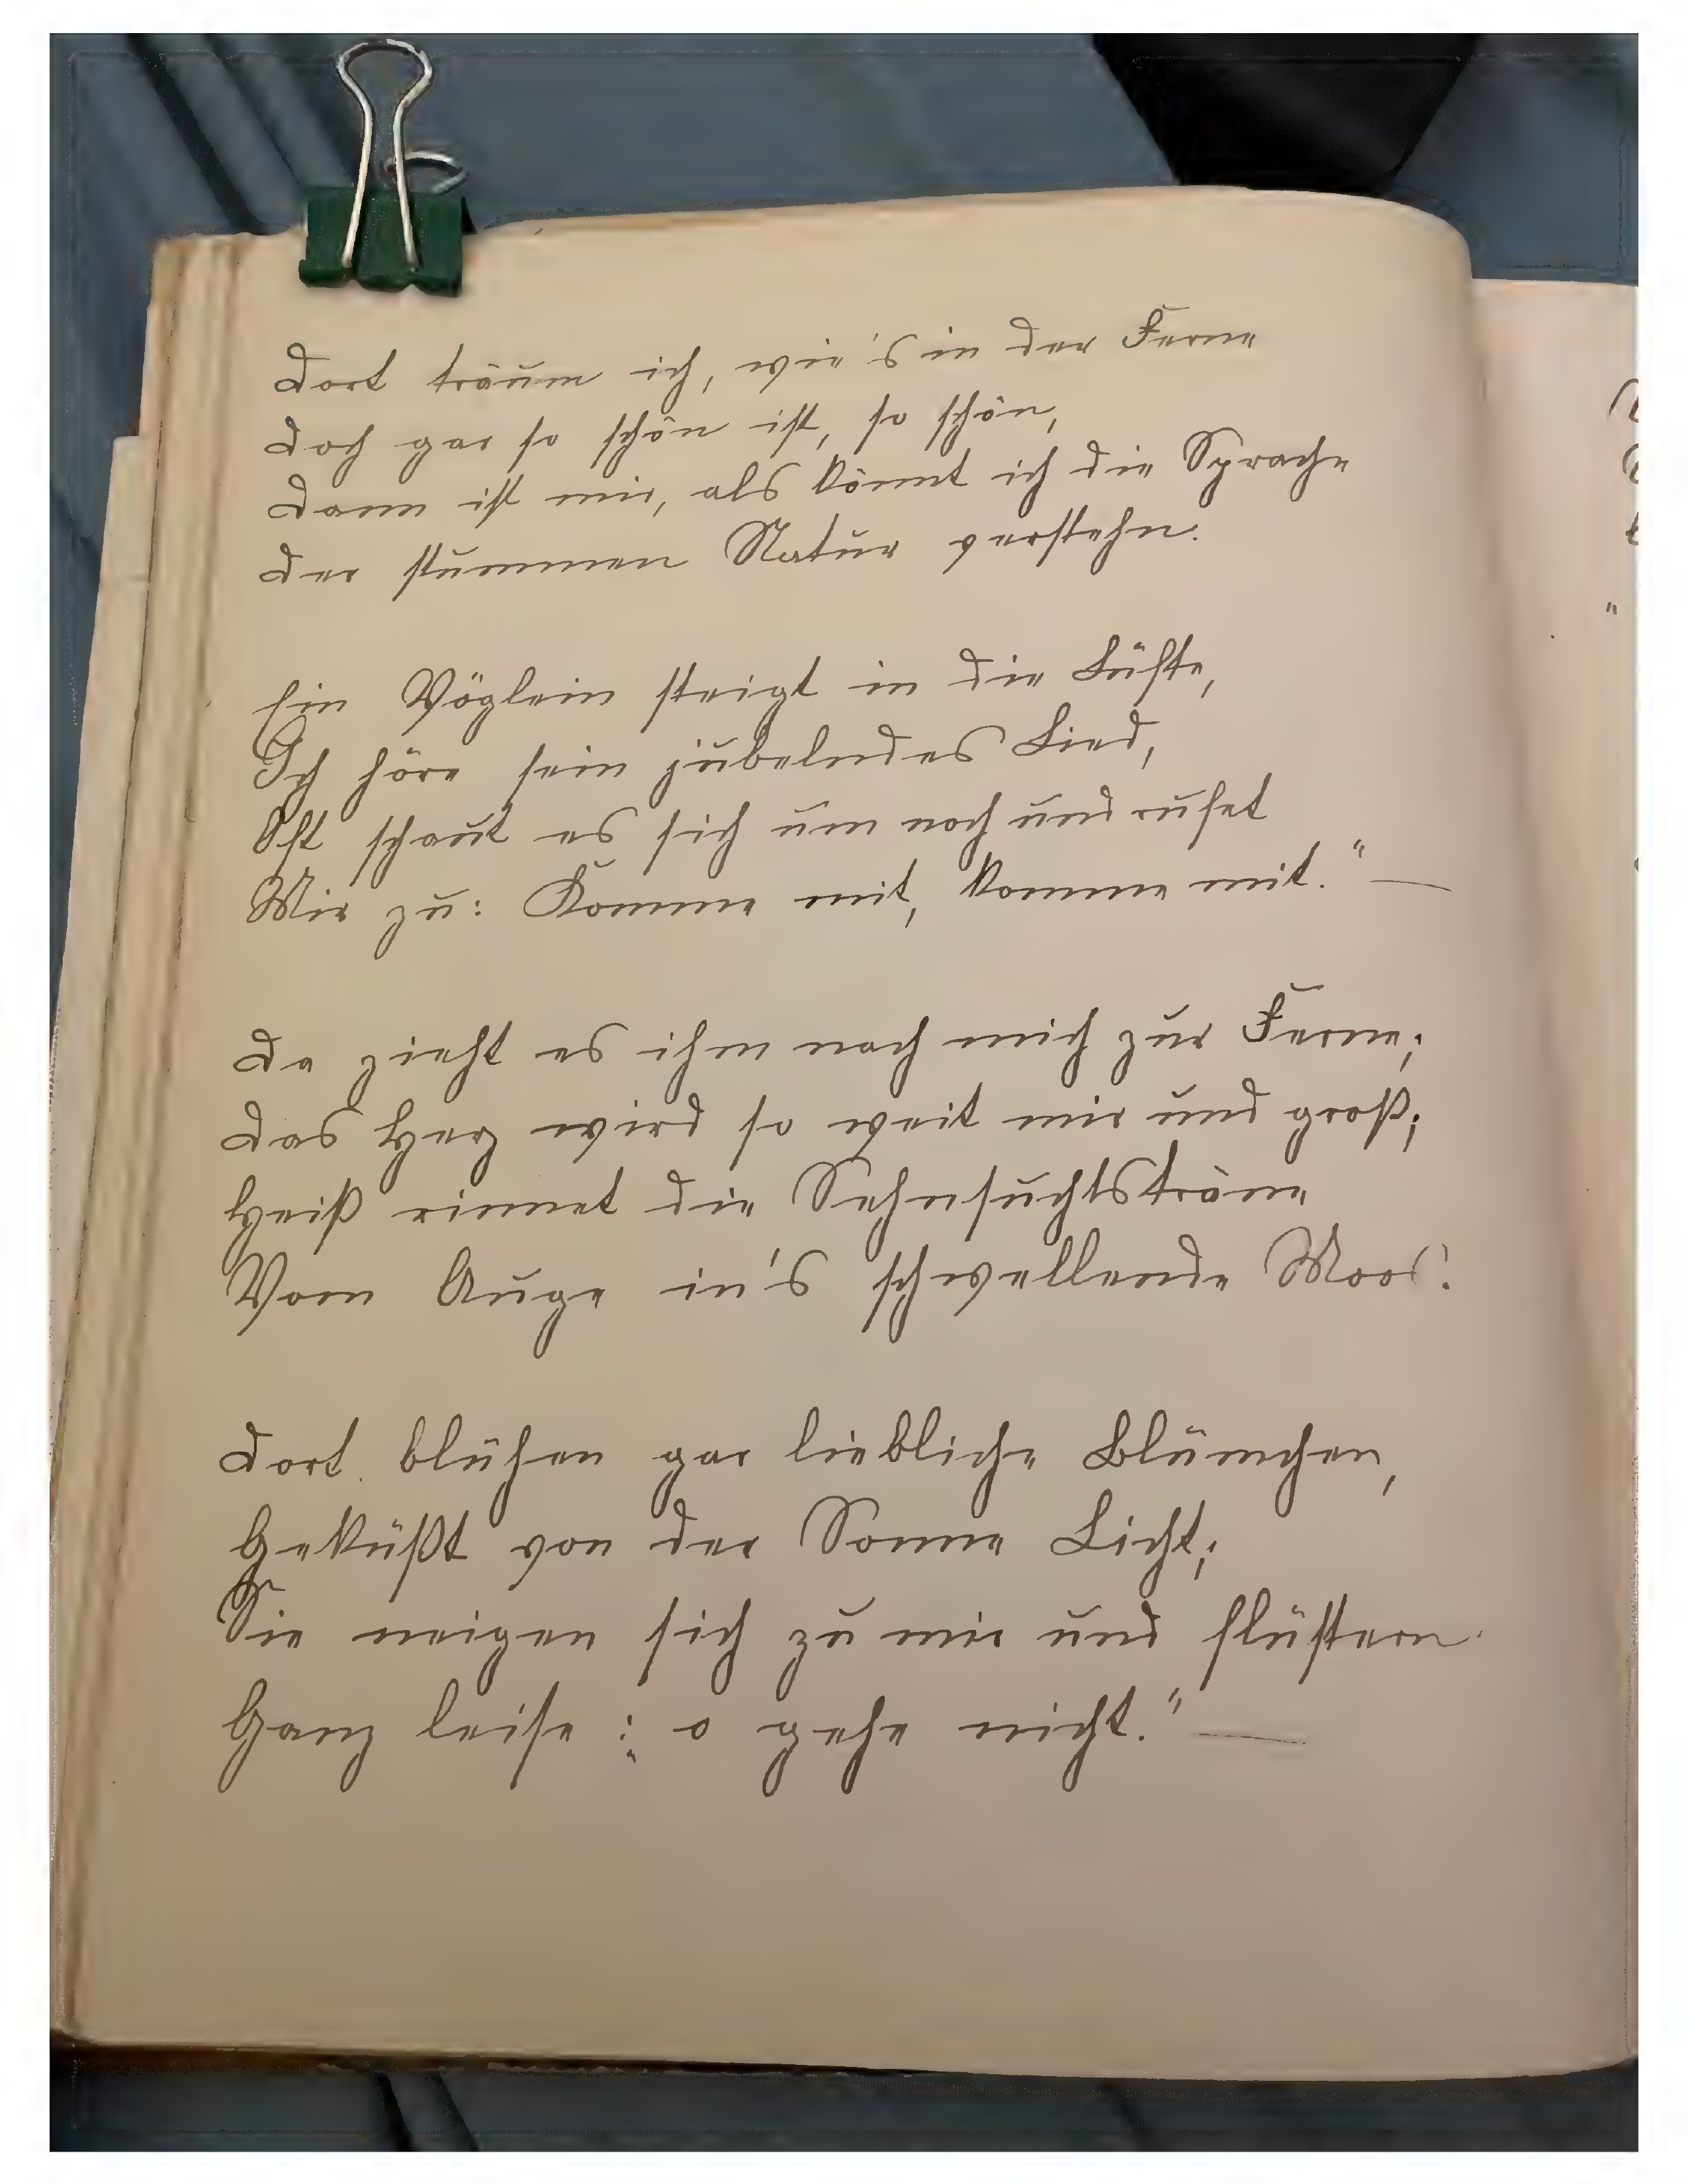 Dort träum ich, wie's in der Ferne
Doch gar so schön ist, so schön,
Dann ist mir, als könnt ich die Sprache
Der stummen Natur verstehn.
Ein Vöglein steigt in die Lüfte,
Ich höre sein jubelndes Lied,
Oft schaut es sich um noch und rufet
Mir zu: Komme mit, komme mit." —
Da zieht es ihm nach mich zur Ferne;
Das Herz wird so weit mir und groß;
Heiß rinnet die Sehnsuchtsträne
Vom Auge in's schwellende Moos.
Dort blühen gar liebliche Blümchen,
Geküßt von der Sonne Licht;
Sie neigen sich zu mir und flüstern
Ganz leise: „o gehe nicht." —